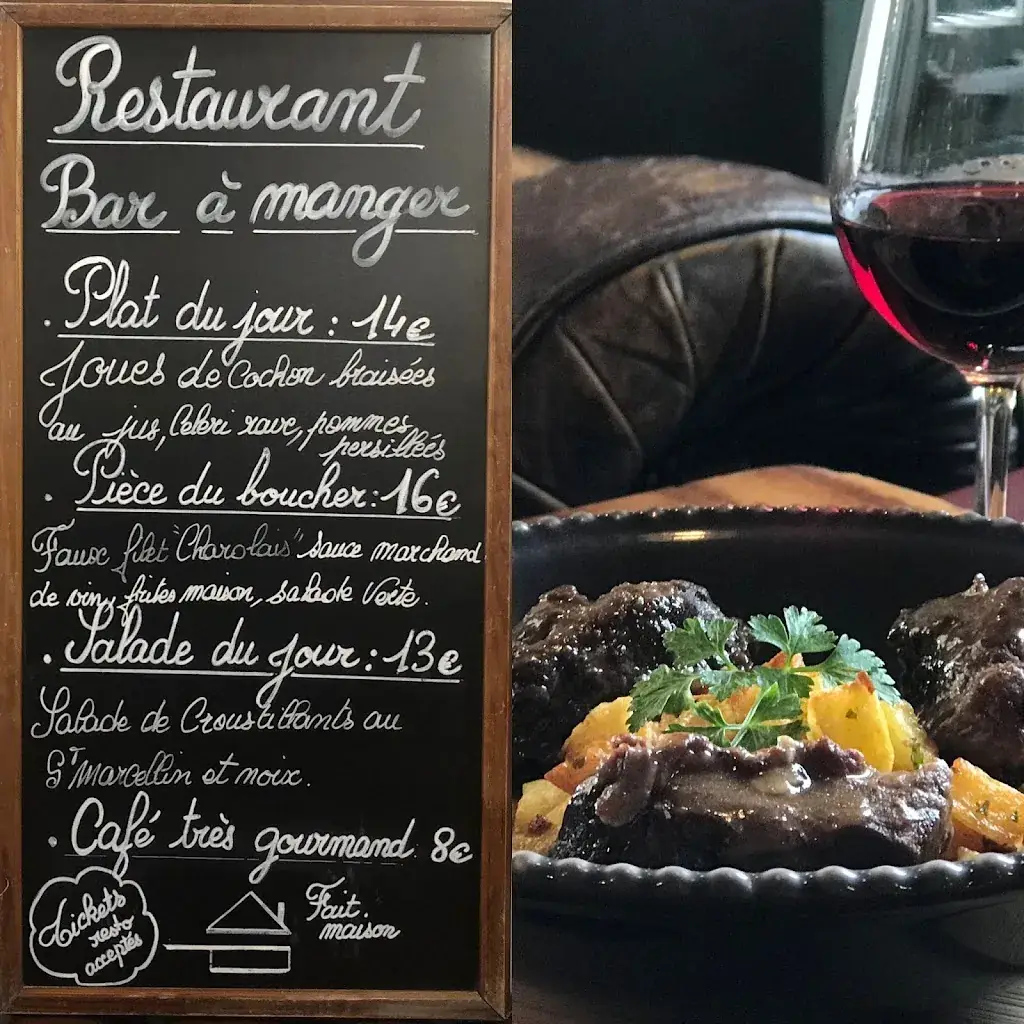 Restaurant
Bar à manger
. Plat du jour : 14€
Joues de Cochon braisées
au jus, Celeri rave, pommes
persillées
. Pièce du boucher : 16€
Faux filet "Charolais" sauce marchand
de vin, frites maison, salade Verte.
. Salade du jour : 13€
Salade de Croustillants au
St Marcellin et noix.
. Café très gourmand 8€
Tickets
resto
acceptés
Fait
maison